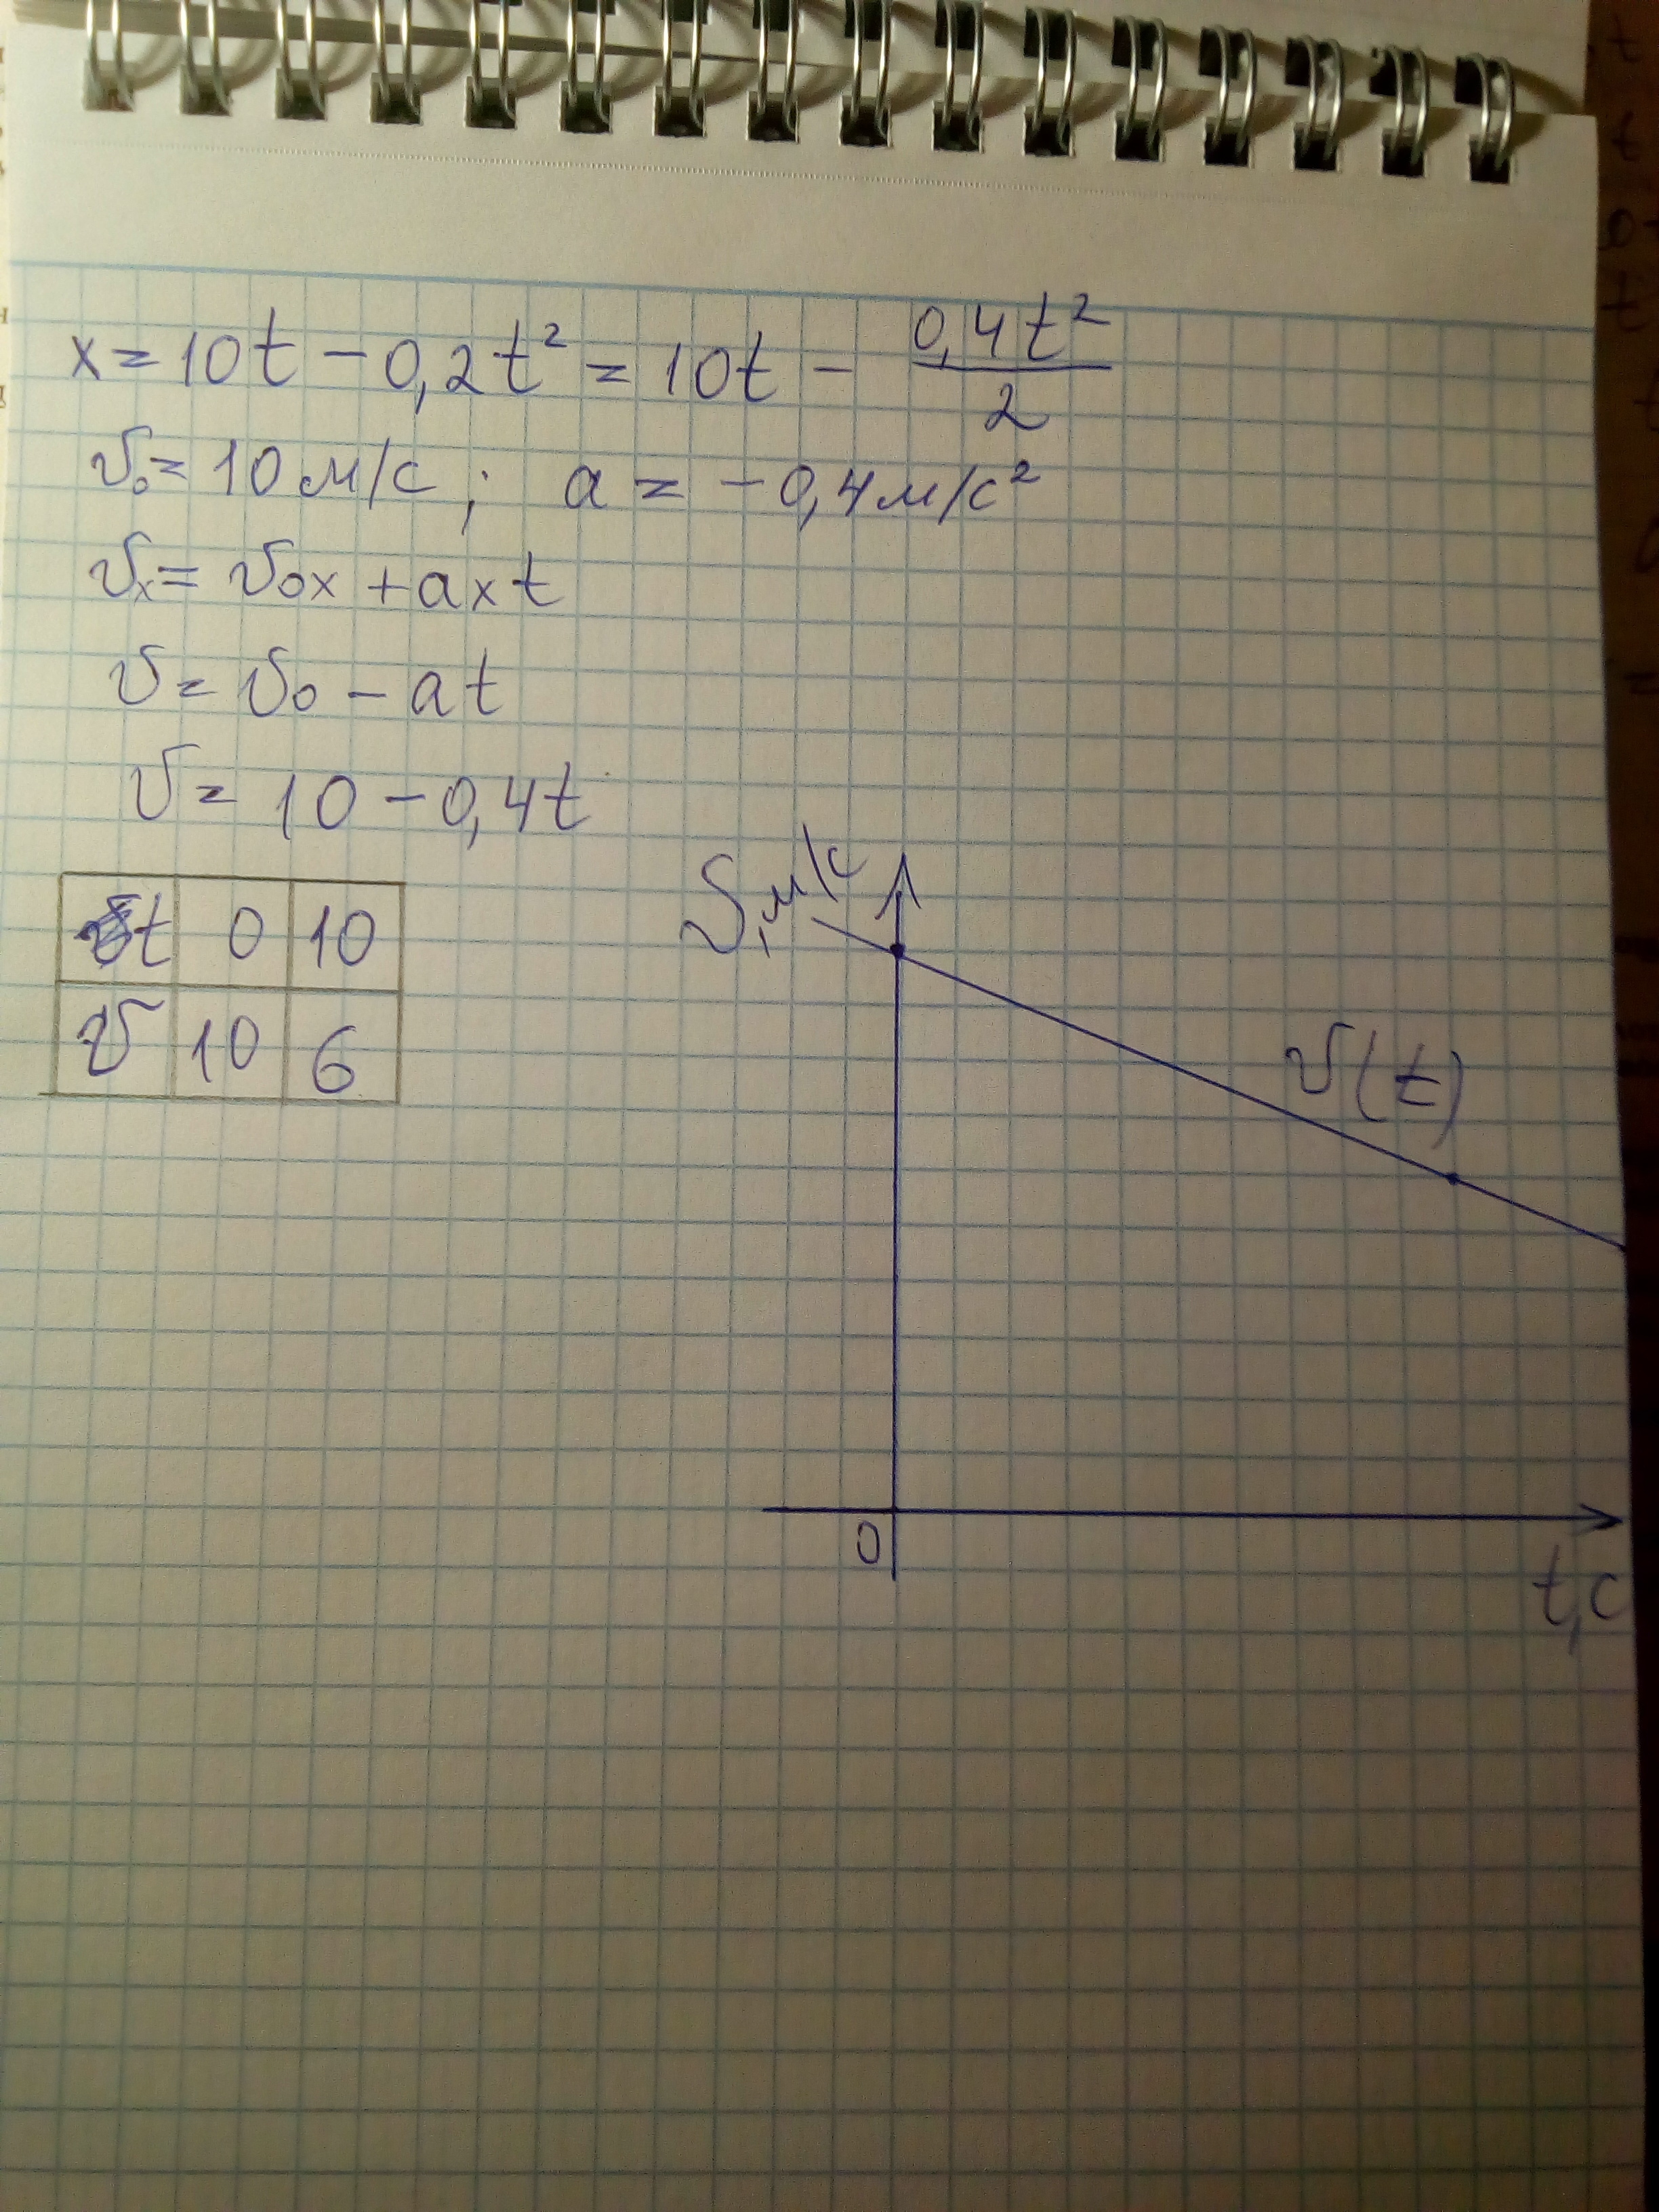 x = 10t - 0,2t² = 10t - 0,4t²/2
v₀ = 10 м/с ; a = -0,4 м/с²
vₓ = v₀ₓ + aₓt
v = v₀ - at
v = 10 - 0,4t
t 0 10
v 10 6
v, м/с
v(t)
0
t, с